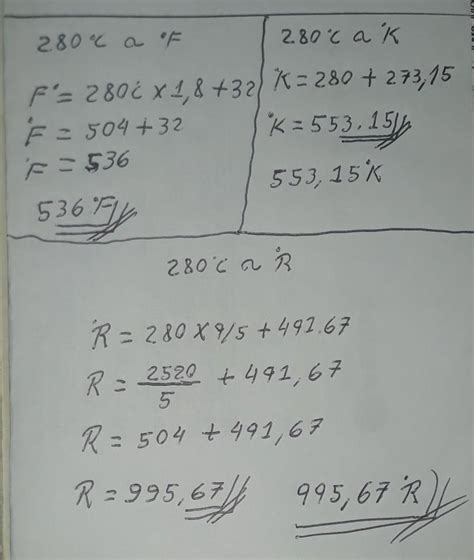 280°c a °F
F° = 280c x 1,8 + 32
°F = 504 + 32
°F = 536
536°F
280°c a °K
°K = 280 + 273,15
°K = 553.15
553,15°K
280°c a °R
°R = 280 x 9/5 + 491.67
R = 2520/5 + 491,67
R = 504 + 491,67
R = 995,67
995,67°R